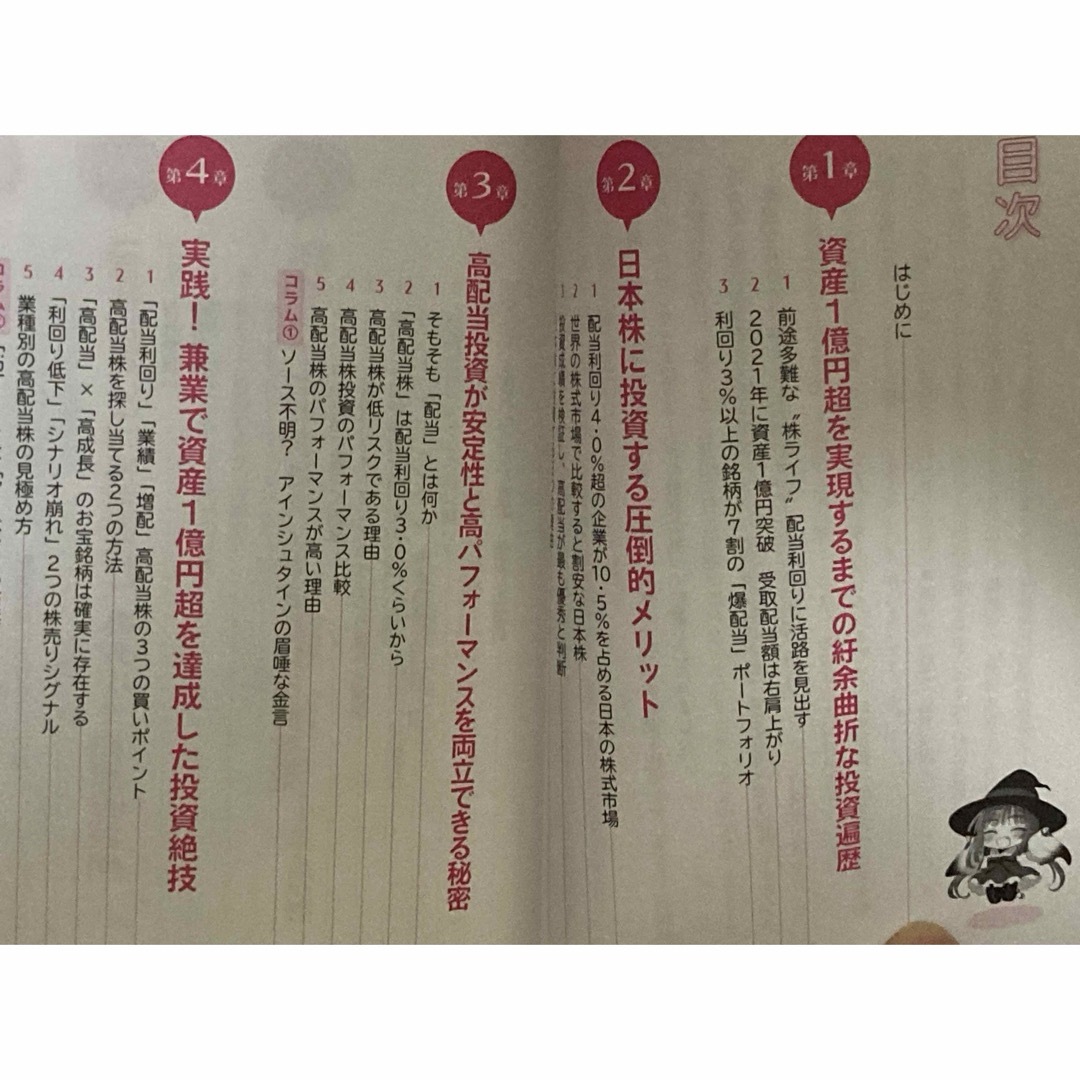 目次
はじめに
第1章
資産1億円超を実現するまでの紆余曲折な投資遍歴
1 前途多難な〝株ライフ〟配当利回りに活路を見出す
2 2021年に資産1億円突破 受取配当額は右肩上がり
3 利回り3％以上の銘柄が7割の「爆配当」ポートフォリオ
第2章
日本株に投資する圧倒的メリット
1 配当利回り4・0％超の企業が10・5％を占める日本の株式市場
2 世界の株式市場で比較すると割安な日本株
投資成績を検証し、高配当が最も優秀と判断
第3章
高配当投資が安定性と高パフォーマンスを両立できる秘密
1 そもそも「配当」とは何か
2 「高配当株」は配当利回り3・0％くらいから
3 高配当株が低リスクである理由
4 高配当株投資のパフォーマンス比較
5 高配当株のパフォーマンスが高い理由
コラム① ソース不明？ アインシュタインの眉唾な金言
第4章
実践！ 兼業で資産1億円超を達成した投資絶技
1 「配当利回り」「業績」「増配」高配当株の3つの買いポイント
2 高配当株を探し当てる2つの方法
3 「高配当」×「高成長」のお宝銘柄は確実に存在する
4 「利回り低下」「シナリオ崩れ」2つの株売りシグナル
5 業種別の高配当株の見極め方